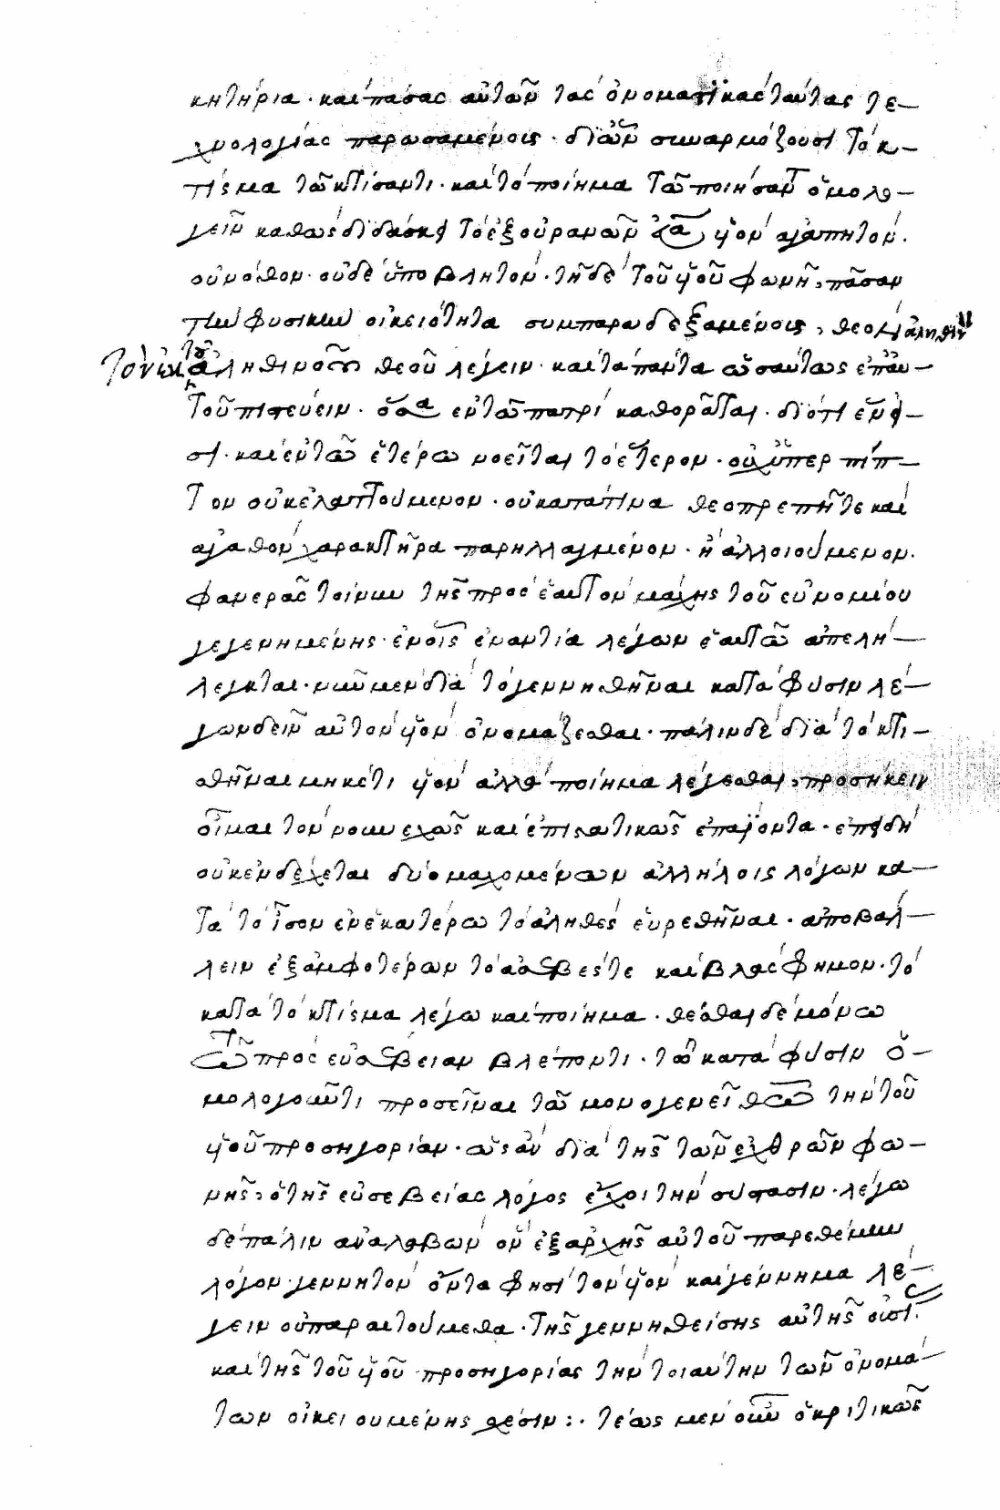 κητήρια· καὶ πάσας αὐτῶν τὰς ὀνοματικὰς ταύτας τε-
χνολογίας παρωσαμένοις· δι' ὧν συναρμόζουσι τὸ κ-
τίσμα τῶ κτίσαντι· καὶ τὸ ποίημα τῶ ποιήσαντ ὁμολο-
γεῖν καθὼς διδάσκει τὸ ἐξ οὐρανῶν υἱὸν ἀγαπητὸν·
οὐ νόθον· οὐδὲ ὑποβλητὸν· τῆ δὲ τοῦ υἱοῦ φωνῆ, πᾶσαν
τὴν φυσικὴν οἰκειότητα συμπαραδεξαμένοις, θεὸν ἀληθιν
τὸν ἐκ τοῦ ἀληθινοῦ θεοῦ λέγειν· καὶ τὰ πάντα ὡσαύτως ἐπ' αὐ-
τοῦ πιστεύειν· ὅσα ἐν τῶ πατρὶ καθορᾶται· διότι ἐν ει-
σι· καὶ ἐν τῶ ἑτέρω νοεῖται τὸ ἕτερον· οὐχ ὑπερπίπ-
τον οὐκ ἐλαττούμενον· οὐ κατά τι μα θεοπρεπῆ τε καὶ
ἀγαθὸν χαρακτῆρα παρηλλαγμένον· ἢ ἀλλοιούμενον·
φανερᾶς τοίνυν τῆς πρὸς ἑαυτὸν μάχης τοῦ εὐνομίου
γεγενημένης· ἐν οἷς ἐναντία λέγων ἑαυτῶ ἀπελή-
λεγκται· νῦν μὲν διὰ τὸ γεννηθῆναι κατὰ φύσιν λέ-
γων δεῖν αὐτὸν υἱὸν ὀνομάζεσθαι· πάλιν δὲ διὰ τὸ κτι-
σθῆναι μηκέτι υἱὸν ἀλλὰ ποίημα λέγεσθαι, προσήκειν
οἶμαι τὸν νουνεχῶς καὶ ἐπιστατικῶς ἐπαΐοντα· ἐπειδὴ
οὐκ ἐνδέχεται δύο μαχομένων ἀλλήλοις λόγων κα-
τὰ τὸ ἴσον ἐν ἑκατέρω τὸ ἀληθὲς εὑρεθῆναι· ἀποβάλ-
λειν ἐξ ἀμφοτέρων τὸ ἀσεβές τε καὶ βλάσφημον· τὸ
κατὰ τὸ κτίσμα λέγω καὶ ποίημα· θέσθαι δὲ μόνω
τῶ πρὸς εὐσέβειαν βλέποντι· τῶ κατὰ φύσιν ὁ-
μολογοῦντι προσεῖναι τῶ μονογενεῖ θεῶ τὴν τοῦ
υἱοῦ προσηγορίαν· ὡς ἂν διὰ τῆς τῶν ἐχθρῶν φω-
νῆς, ὁ τῆς εὐσεβείας λόγος ἔχοι τὴν σύστασιν· λέγω
δὲ πάλιν ἀναλαβὼν ὃν ἐξ ἀρχῆς αὐτοῦ παρεθέμην
λόγον· γεννητὸν ὄντα φησὶ τὸν υἱὸν καὶ γέννημα λέ-
γειν οὐ παραιτούμεθα· τῆς γεννηθείσης αὐτῆς οὐσί
καὶ τῆς τοῦ υἱοῦ προσηγορίας τὴν τοιαύτην τῶν ὀνομά-
των οἰκειουμένης θέσιν:· τέως μὲν οὖν ὁ κριτικῶς